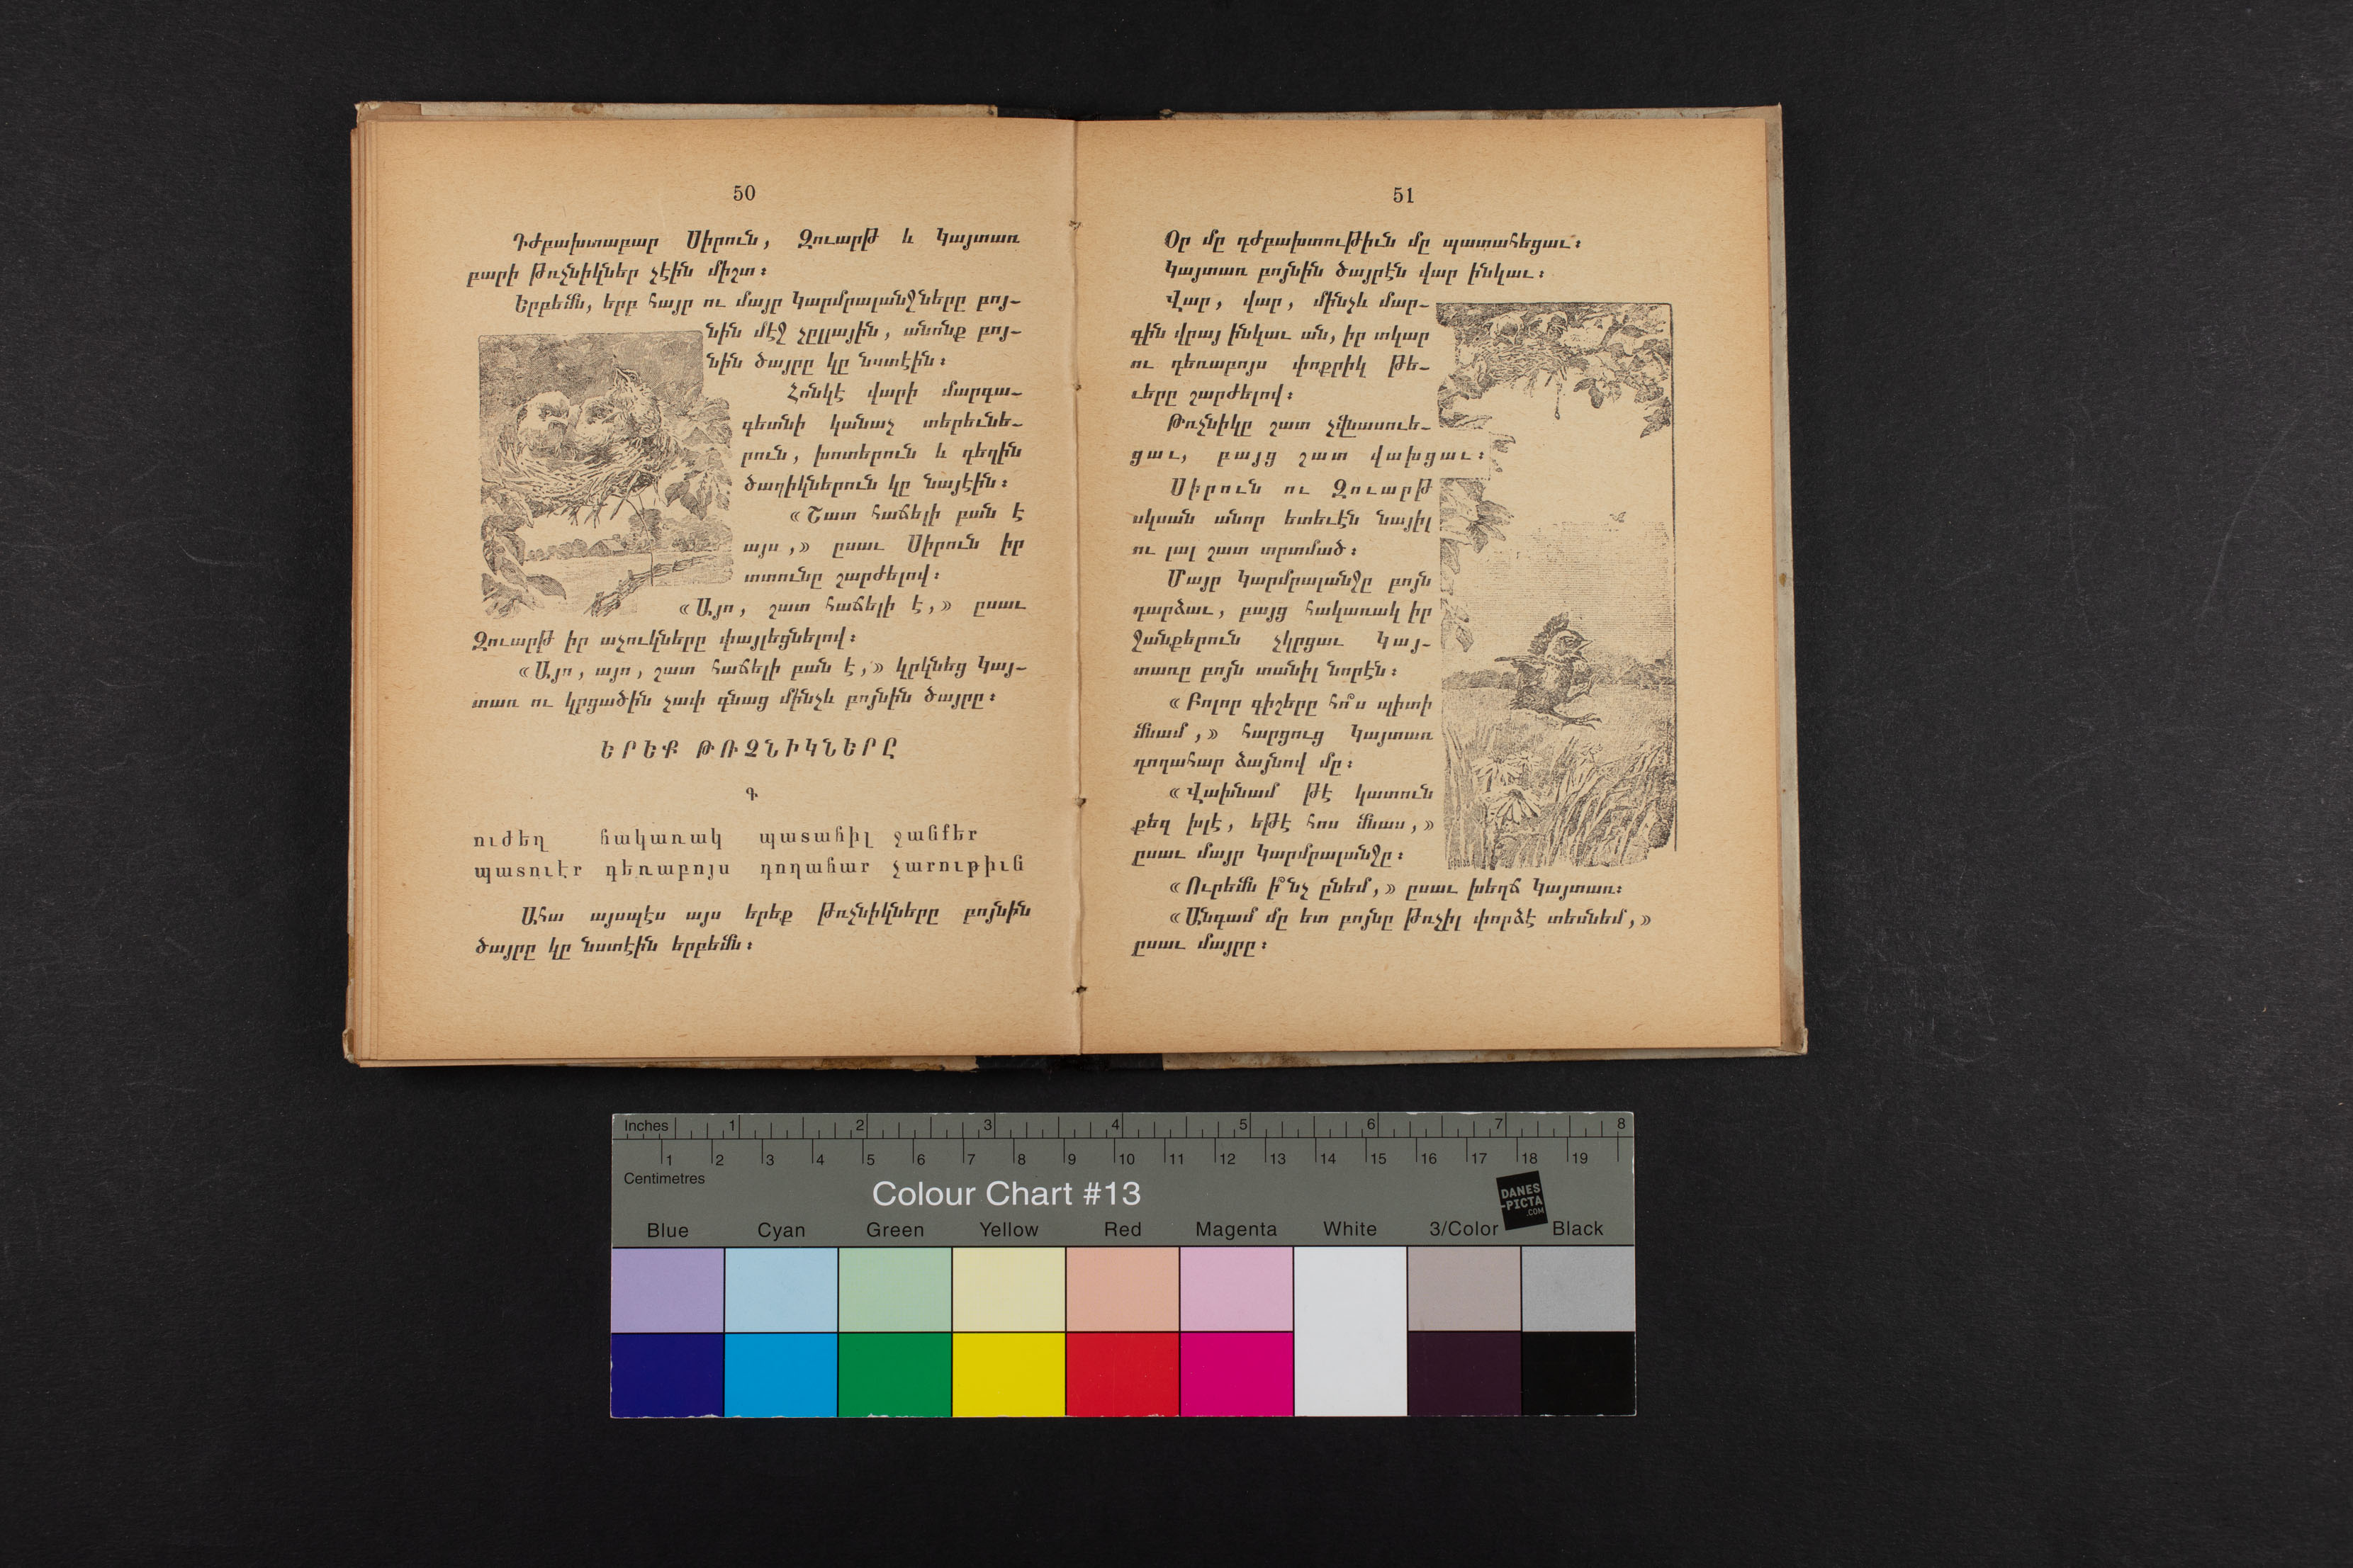 50
Դժբախտաբար Սիրուն, Զուարթ և Կայտառ
բարի թռչնիկներ չէին միշտ։
Երբեմն, երբ հայր ու մայր Կարմրալանջները բոյ-
նին մէջ չըլլային, անոնք բոյ-
նին ծայրը կը նստէին։
Հոնկէ վարի մարգա-
գետնի կանաչ տերեւնե-
րուն, խոտերուն և դեղին
ծաղիկներուն կը նայէին։
«Շատ հաճելի բան է
այս,» ըսաւ Սիրուն իր
տտունը շարժելով։
«Այո, շատ հաճելի է,» ըսաւ
Զուարթ իր աչուկները փայլեցնելով։
«Այո, այո, շատ հաճելի բան է,» կրկնեց Կայ-
տառ ու կրցածին չափ գնաց մինչև բոյնին ծայրը։
ԵՐԵՔ ԹՌՉՆԻԿՆԵՐԸ
Գ
ուժեղ հակառակ պատահիլ ջանքեր
պատուէր դեռաբոյս դողահար չարութիւն
Ահա այսպէս այս երեք թռչնիկները բոյնին
ծայրը կը նստէին երբեմն։
51
Օր մը դժբախտութիւն մը պատահեցաւ։
Կայտառ բոյնին ծայրէն վար ինկաւ։
Վար, վար, մինչև մար-
գին վրայ ինկաւ ան, իր տկար
ու դեռաբոյս փոքրիկ թե-
ւերը շարժելով։
Թռչնիկը շատ չվնասուե-
ցաւ, բայց շատ վախցաւ։
Սիրուն ու Զուարթ
սկսան անոր ետեւէն նայիլ
ու լալ շատ տրտմած։
Մայր Կարմրալանջը բոյն
դարձաւ, բայց հակառակ իր
ջանքերուն չկրցաւ Կայ-
տառը բոյն տանիլ նորէն։
«Բոլոր գիշերը հո՞ս պիտի
մնամ,» հարցուց Կայտառ
դողահար ձայնով մը։
«Վախնամ թէ կատուն
քեզ խլէ, եթէ հոս մնաս,»
ըսաւ մայր Կարմրալանջը։
«Ուրեմն ի՞նչ ընեմ,» ըսաւ խեղճ Կայտառ։
«Անգամ մը ետ բոյնը թռչիլ փորձէ տեսնեմ,»
ըսաւ մայրը։
Inches 1 2 3 4 5 6 7 8
1 2 3 4 5 6 7 8 9 10 11 12 13 14 15 16 17 18 19
Centimetres
Colour Chart #13
DANES
-PICTA
.COM
Blue Cyan Green Yellow Red Magenta White 3/Color Black